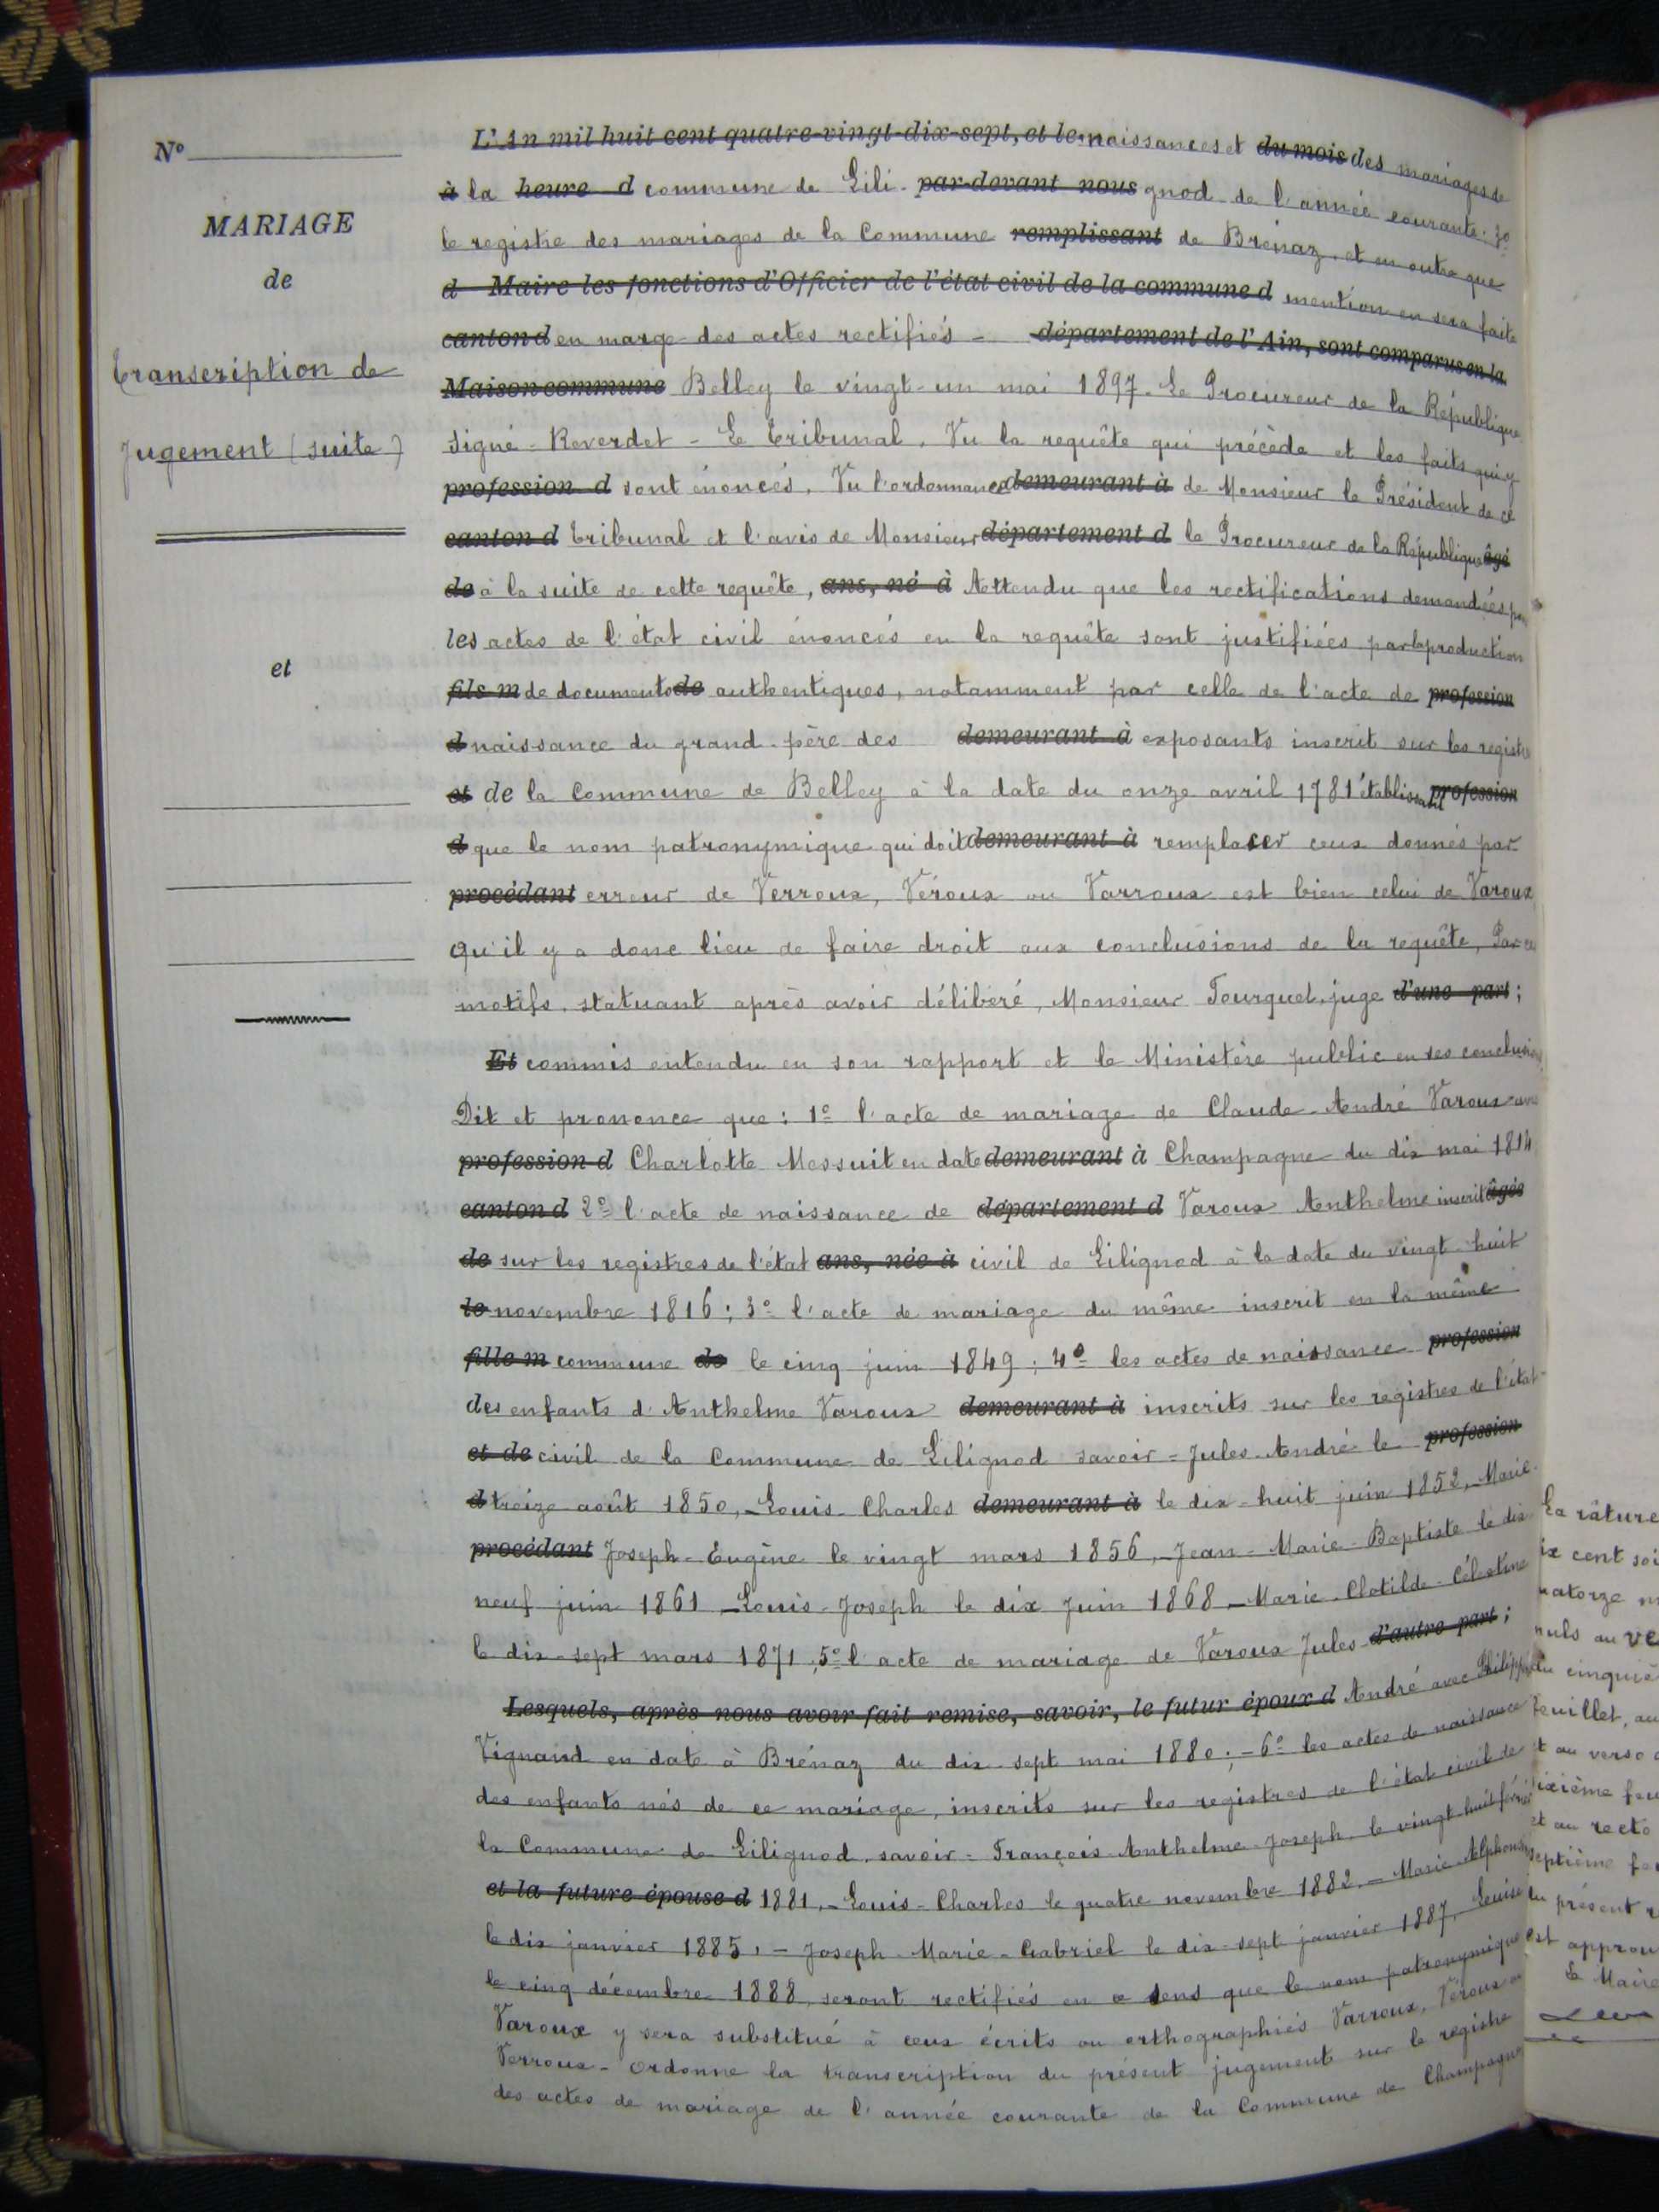 N°
MARIAGE
de
transcription de
jugement (suite)
et
L'An mil huit cent quatre-vingt-dix-sept, et le naissances et du mois des mariages de
à la heure d commune de Lili- par-devant nous gnod de l'année courante; 3°
le registre des mariages de la Commune remplissant de Brénaz, et en outre que
d Maire les fonctions d'Officier de l'état civil de la commune d mention en sera faite
canton d en marge des actes rectifiés - département de l'Ain, sont comparus en la
Maison commune Belley le vingt-un mai 1897. Le Procureur de la République
signé - Reverdet - Le tribunal, Vu la requête qui précède et les faits qui y
profession d sont énoncés, Vu l'ordonnance demeurant à de Monsieur le Président de ce
canton d tribunal et l'avis de Monsieur département d le Procureur de la République âgé
de à la suite de cette requête, ans, né à Attendu que les rectifications demandées
les actes de l'état civil énoncés en la requête sont justifiées par la production
fils m de documents de authentiques, notamment par celle de l'acte de profession
d naissance du grand-père des demeurant à exposants inscrit sur les registres
et de la Commune de Belley à la date du onze avril 1781 établissant profession
d que le nom patronymique qui doit demeurant à remplacer ceux donnés par
procédant erreur de Verroux, Véroux ou Varroux est bien celui de Varoux,
qu'il y a donc lieu de faire droit aux conclusions de la requête, Par ces
motifs, statuant après avoir délibéré, Monsieur Tourquet, juge d'une part;
Et commis entendu en son rapport et le Ministère public en ses conclusions
Dit et prononce que: 1° l'acte de mariage de Claude-André Varoux avec
profession d Charlotte Messuit en date demeurant à Champagne du dix mai 1814
canton d 2° l'acte de naissance de département d Varoux Anthelme inscrit âgée
de sur les registres de l'état ans, née à civil de Lilignod à la date du vingt-huit
le novembre 1816; 3° l'acte de mariage du même inscrit en la même
fille m commune de le cinq juin 1849; 4° les actes de naissance profession
des enfants d'Anthelme Varoux demeurant à inscrits sur les registres de l'état-
et de civil de la Commune de Lilignod savoir = Jules-André le profession
d treize août 1850, - Louis-Charles demeurant à le dix-huit juin 1852, - Marie-
procédant Joseph-Eugène le vingt mars 1856, - Jean-Marie-Baptiste le dix-
neuf juin 1861 - Louis-Joseph le dix juin 1868 - Marie-Clotilde-Célestine
le dix-sept mars 1871; 5° l'acte de mariage de Varoux Jules- d'autre part;
Lesquels, après nous avoir fait remise, savoir, le futur époux d André avec
Vignand en date à Brénaz du dix-sept mai 1880; - 6° les actes de naissance
des enfants nés de ce mariage, inscrits sur les registres de l'état civil de
la Commune de Lilignod, savoir = François-Anthelme-Joseph le vingt-huit février
et la future épouse d 1881, - Louis-Charles le quatre novembre 1882, - Marie-Alphonsine
le dix janvier 1885, - Joseph-Marie-Gabriel le dix-sept janvier 1887, Louise
le cinq décembre 1888, seront rectifiés en ce sens que le nom patronymique
Varoux y sera substitué à ceux écrits ou orthographiés Varroux, Véroux ou
Verroux - Ordonne la transcription du présent jugement sur le registre
des actes de mariage de l'année courante de la Commune de Champagne
La râture
ix cent soi
uatorze m
nuls au ve
du cinquiè
feuillet, au
et au verso
ixième feu
et au recto
septième fe
du présent r
est approu
Le Maire